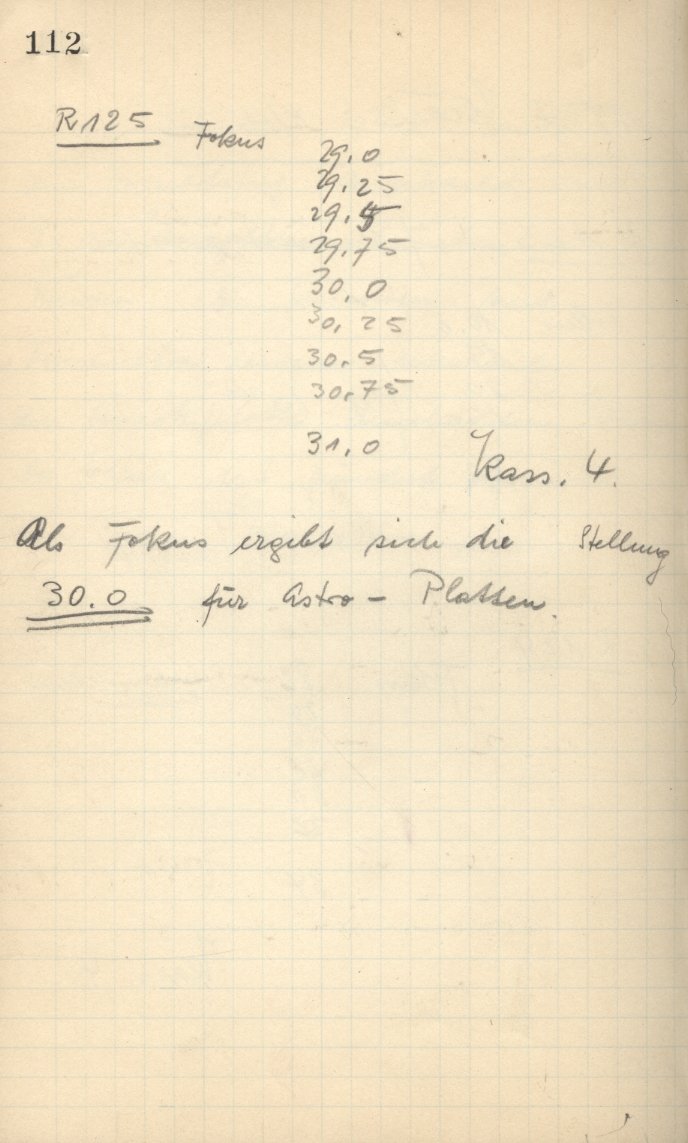 112
R 125 Fokus 29.0
29.25
29.5
29.75
30.0
30.25
30.5
30.75
31.0 Kass. 4.
Als Fokus ergibt sich die Stellung
30.0 für Astro - Platten.